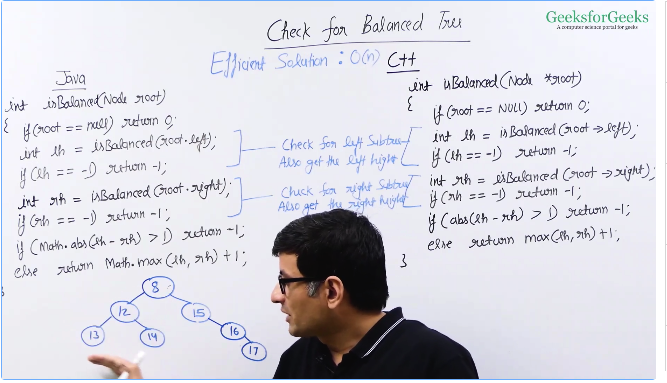 Check for Balanced Tree
GeeksforGeeks
A computer science portal for geeks
Efficient Solution : O(n)
Java
int isBalanced(Node root)
{
if(root == null) return 0;
int lh = isBalanced(root.left);
if(lh == -1) return -1;
int rh = isBalanced(root.right);
if(rh == -1) return -1;
if (Math.abs(lh - rh) > 1) return -1;
else return Math.max(lh, rh) + 1;
}
Check for left Subtree
Also get the left height
Check for right Subtree
Also get the right height
C++
int isBalanced(Node *root)
{
if(root == NULL) return 0;
int lh = isBalanced(root → left);
if(lh == -1) return -1;
int rh = isBalanced(root → right);
if(rh == -1) return -1;
if(abs(lh - rh) > 1) return -1;
else return max(lh, rh) + 1;
}
8
12
15
13
14
16
17